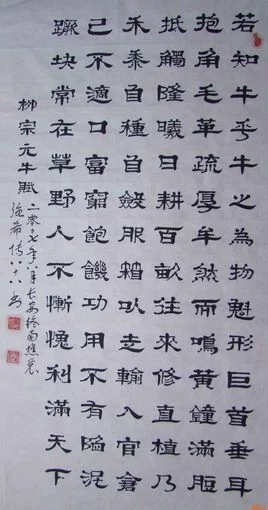 若知牛乎牛之為物魁形巨首垂耳
抱角毛革疏厚牟然而鳴黃鐘滿脰
抵觸隆曦日耕百畝往來修直植乃
禾黍自種自斂服箱以走輸入官倉
己不適口富窮飽饑功用不有陷泥
蹶塊常在草野人不慚愧利滿天下
柳宗元牛賦 二零一七年 長安終南
八十八